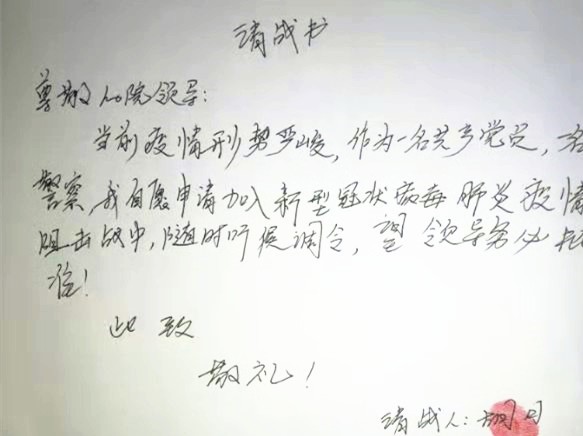 请战书
尊敬的院领导：
当前疫情形势严峻，作为一名共产党员，
警察，我自愿申请加入新型冠状病毒肺炎疫情
阻击战中，随时听候调令，望领导务必批
准！
此致
敬礼！
请战人：胡